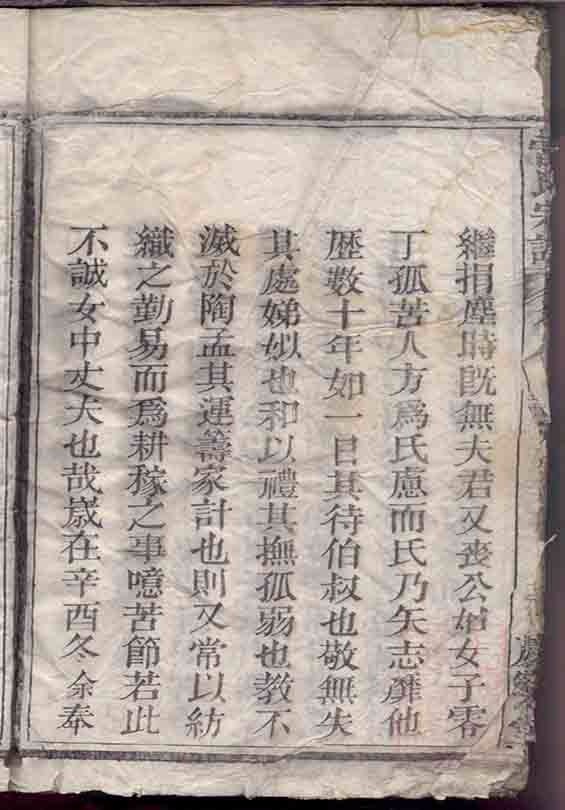 繼捐塵時既無夫君又喪公姑女子零
丁孤苦人方為氏慮而氏乃矢志靡他
歷數十年如一日其待伯叔也敬無失
其處娣姒也和以禮其撫孤弱也教不
滅於陶孟其運籌家計也則又常以紡
織之勤易而為耕稼之事噫苦節若此
不誠女中丈夫也哉歲在辛酉冬余奉
氏宗譜